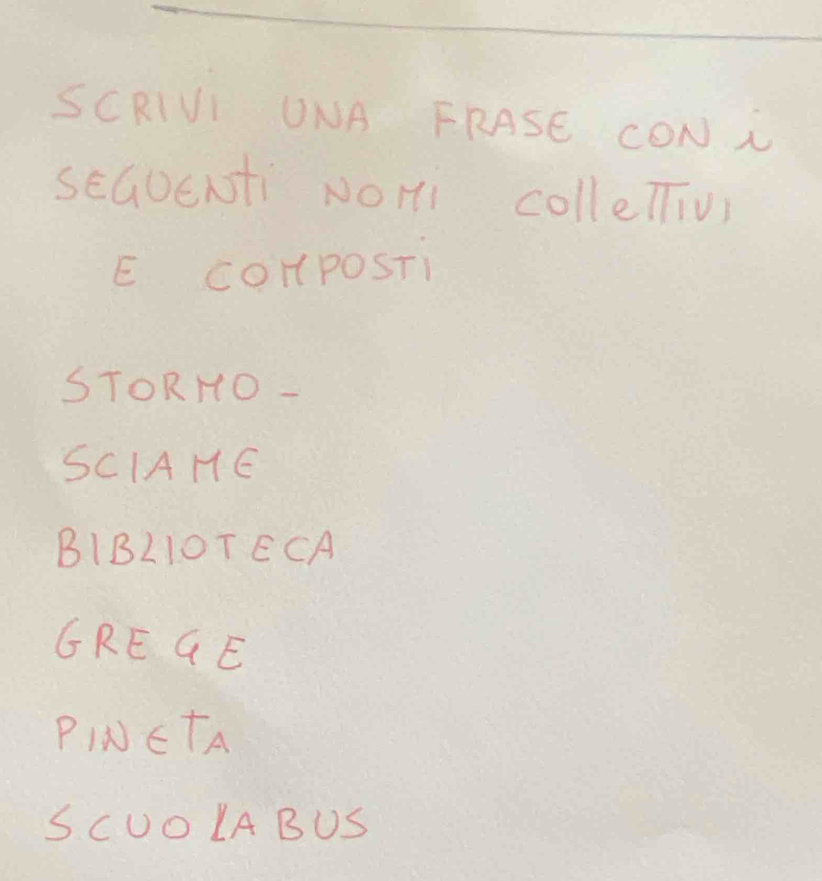 SCRIVI UNA FRASE CON i
SEGUENTi NOMi collETTIVI
E COMPOSTi
STORMO -
SCIAME
BIBLIOTECA
GREGE
PINETA
SCUOLABUS